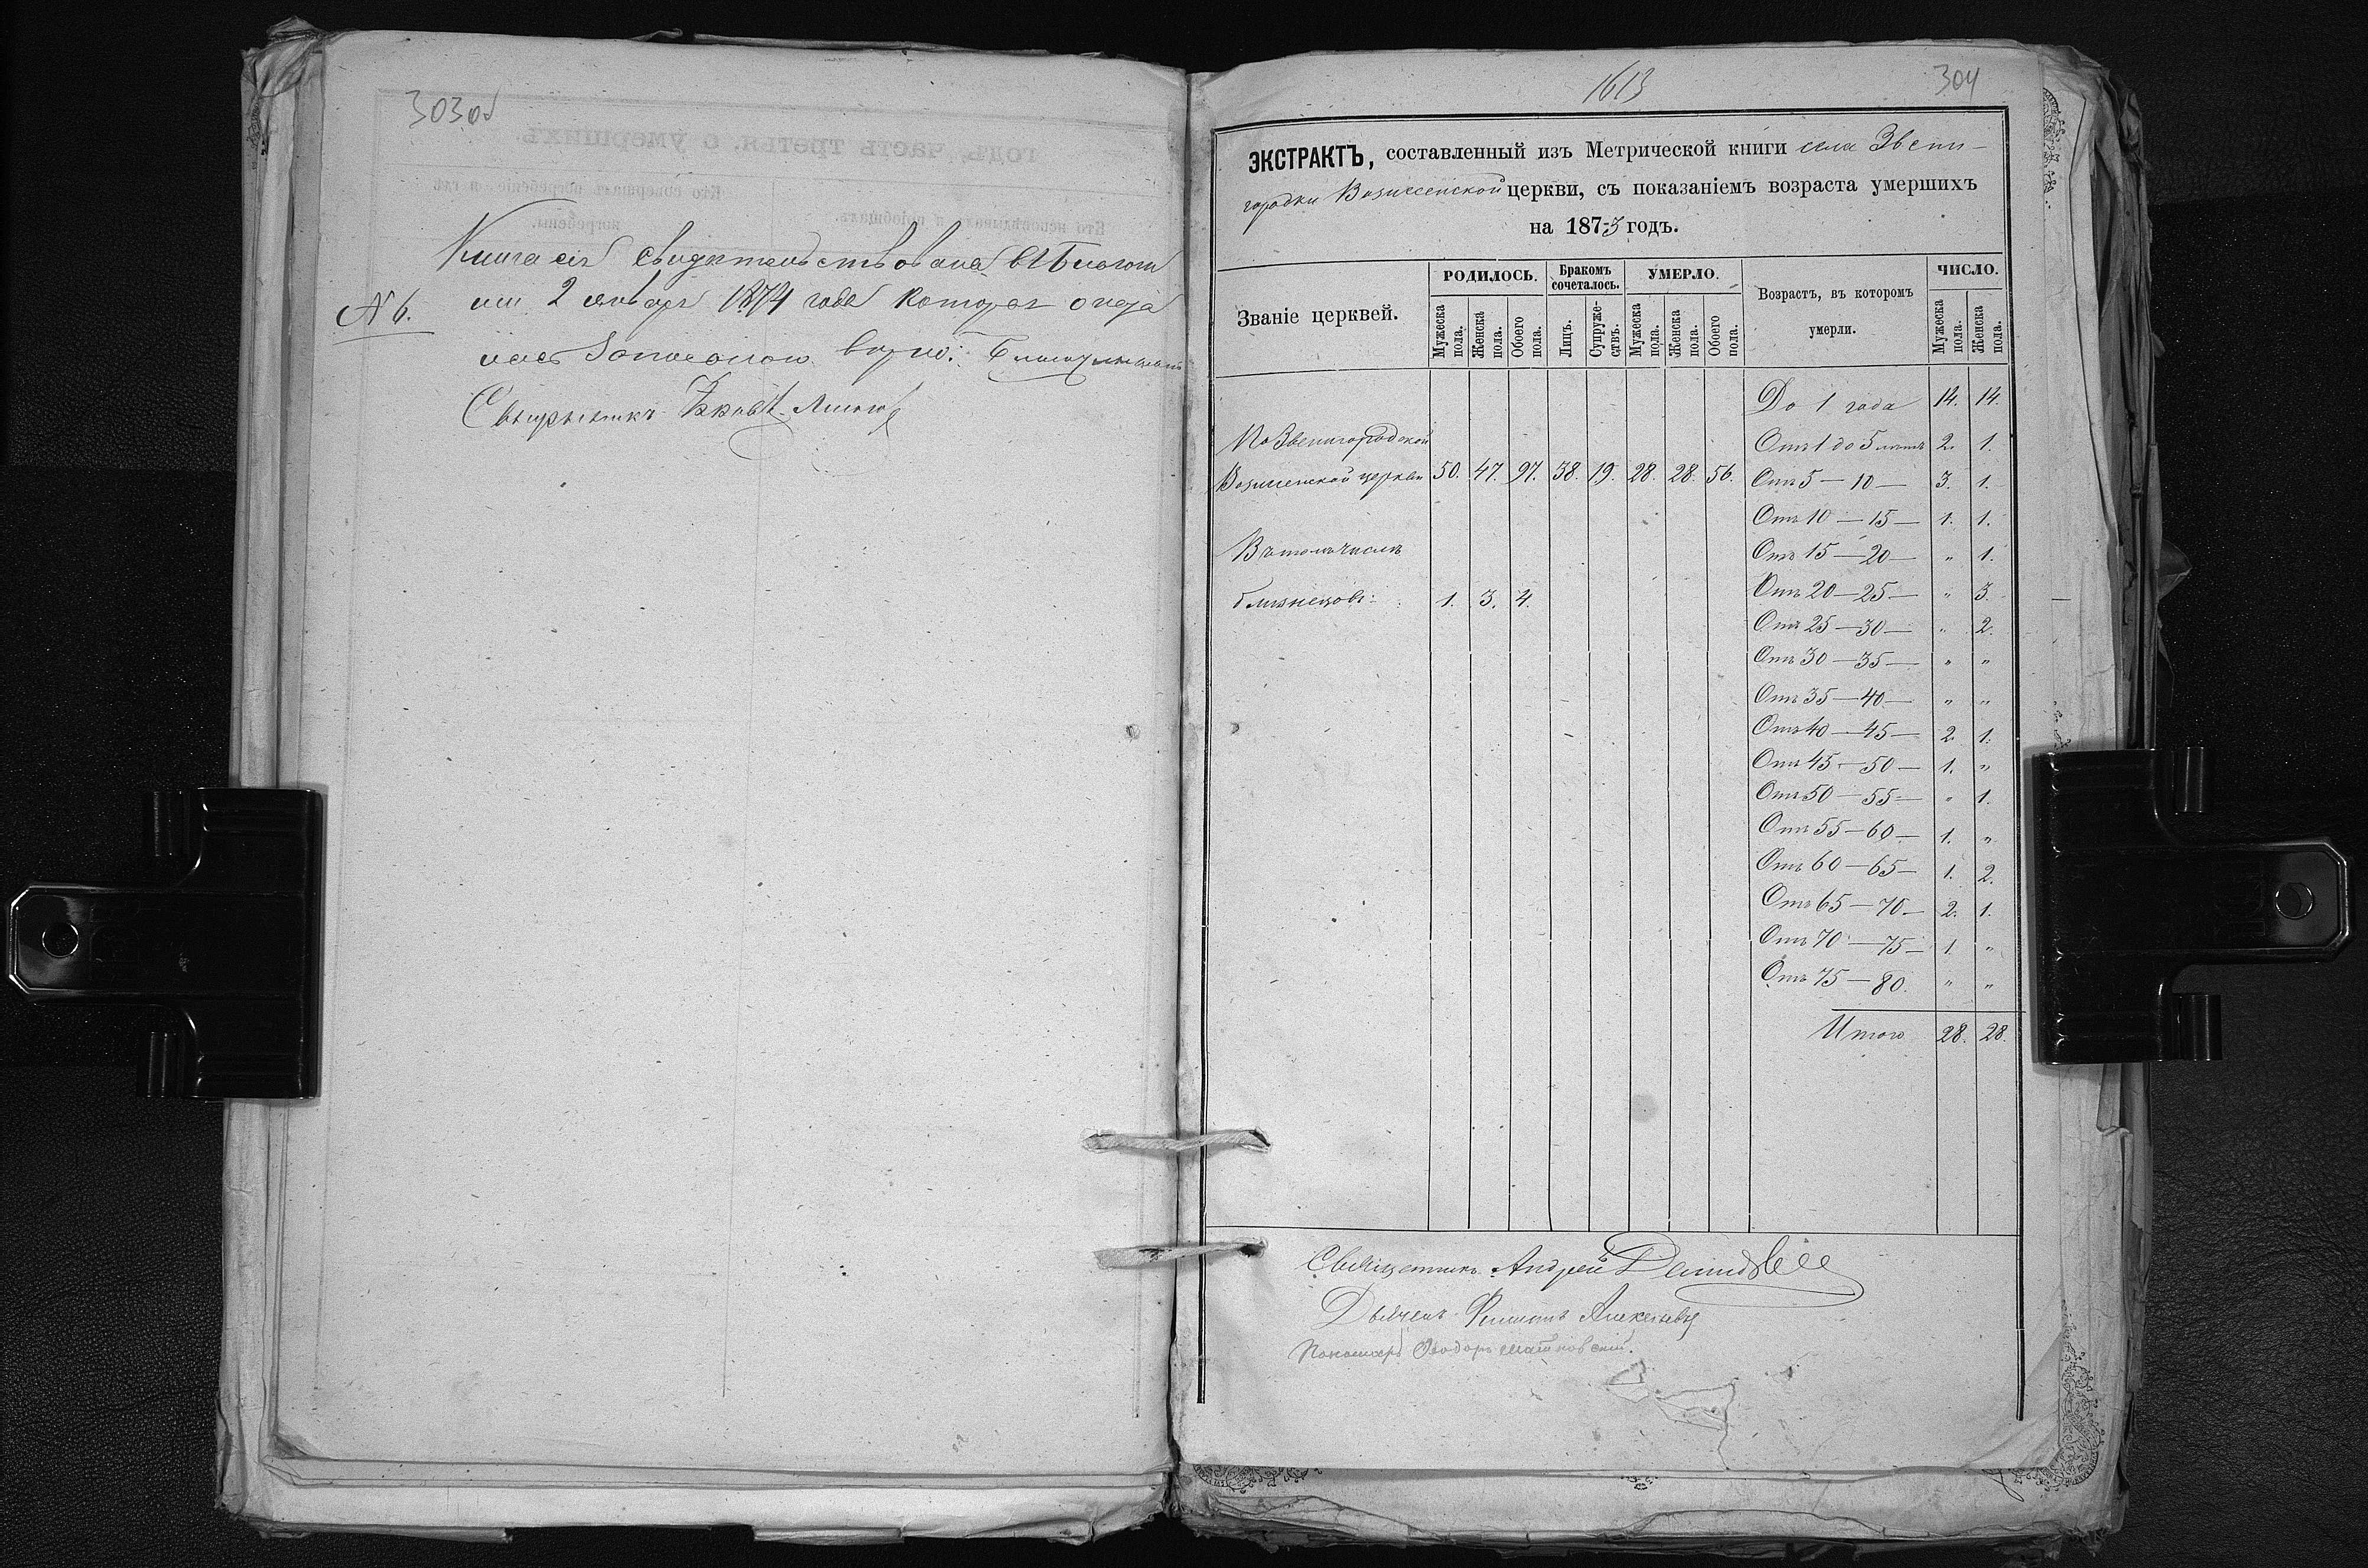 303об
Книга сія свидѣтельствована
№ 6.
2 января 1874 года
1613
304
ЭКСТРАКТЪ, составленный изъ Метрической книги села Звени-
городки Вознесенской церкви, съ показаніемъ возраста умершихъ
на 1873 годъ.
Званіе церквей.
РОДИЛОСЬ.
Бракомъ сочеталось.
УМЕРЛО.
Возрастъ, въ которомъ умерли.
ЧИСЛО.
Мужеска пола.
Женска пола.
Обоего пола.
Лицъ.
Супруже-ствъ.
Мужеска пола.
Женска пола.
Обоего пола.
Мужеска пола.
Женска пола.
До 1 года 14. 14.
По Звенигородской
Отъ 1 до 5 лѣтъ 2. 1.
Вознесенской церкви 50. 47. 97. 38. 19. 28. 28. 56. Отъ 5 — 10 — 3. 1.
Отъ 10 — 15 — 1. 1.
Въ томъ числѣ
Отъ 15 — 20 — " 1.
близнецовъ: 1. 3. 4.
Отъ 20 — 25 — " 3.
Отъ 25 — 30 — " 2.
Отъ 30 — 35 — " "
Отъ 35 — 40 — " "
Отъ 40 — 45 — 2. 1.
Отъ 45 — 50 — 1. "
Отъ 50 — 55 — " 1.
Отъ 55 — 60 — 1. "
Отъ 60 — 65 — 1. 2.
Отъ 65 — 70 — 2. 1.
Отъ 70 — 75 — 1. "
Отъ 75 — 80. " "
Итого 28. 28.
Священникъ Андрей
Дьячекъ Филиппъ Алексѣевъ
Пономарь Ѳеодоръ